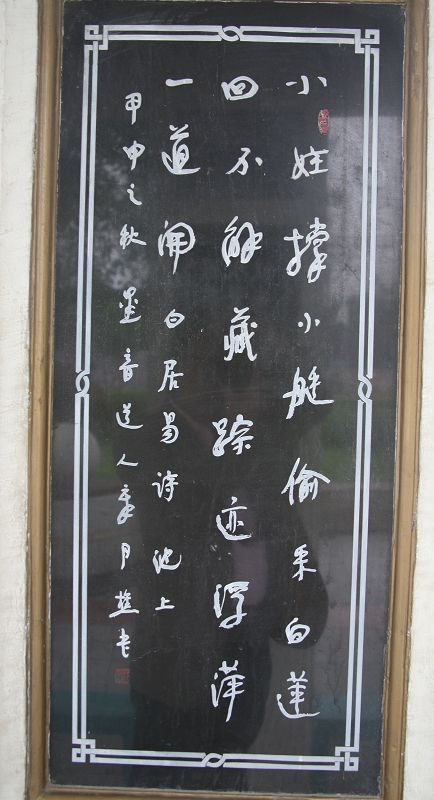 小娃撑小艇偷采白蓮
回不解藏踪迹浮萍
一道開白居易诗池上
甲申之秋音道人月书